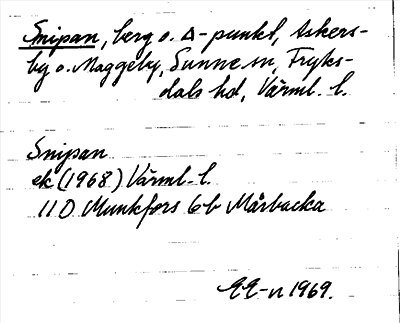 Snipan, berg o. ∆-punkt, Askers-
by o. Maggeby, Sunne sn, Fryks-
dals hd, Värml. l.
Snipan
ek (1968) Värml. l.
11 D Munkfors 6b Mårbacka
1969.